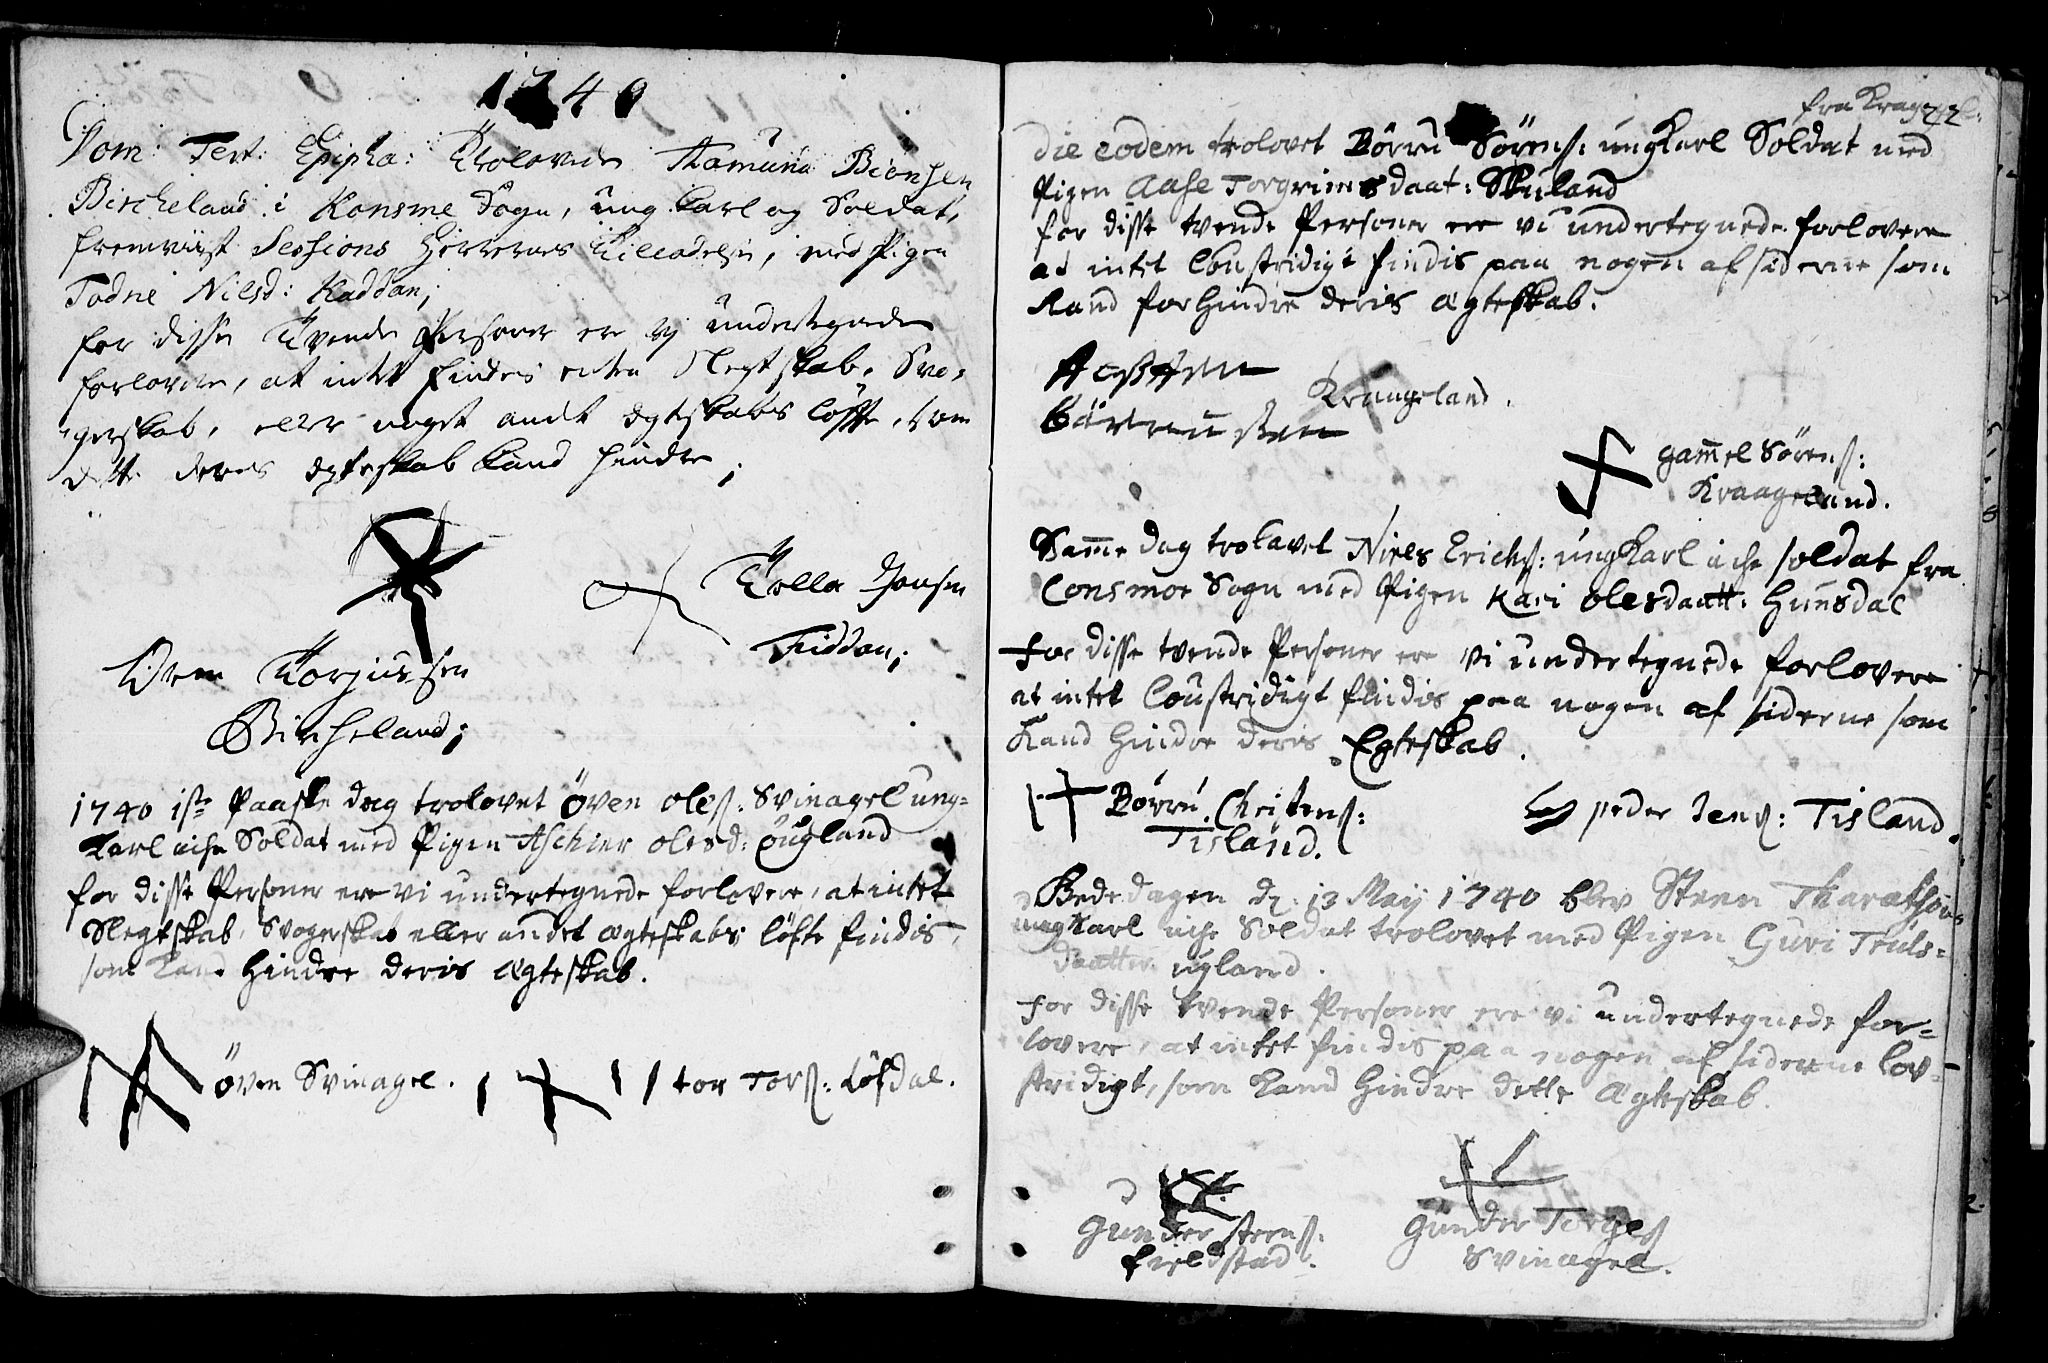 1740
Dom: Tert: Epipha: Trolovede Aamund Biönsen
Bircheland i Konsme Sogn, ung Karl og Soldat,
fremviist Sessions Herrernes Tilladelse, med Pigen
Todne Nilsd: Kaddan;
for disse Tvende Personer ere vj undertegnede
forlovere, at intet findes enten Slegtskab, Svo-
gerskab, eller noget andt ægteskabs löffte, som
dette deres ægteskab kand hindre;
Tolla Jonsen
Fiddan;
Oven Torjussen
Bircheland;
1740 1ste Paaske dag trolovet Öven Oless: Svinagel ung-
Karl iche Soldat med Pigen Aschier Olesd: Öugland
for disse Personer ere vi undertegnede forlovere, at intet
Slegtskab, Svogerskab eller andet ægteskabs löfte findis,
som kand hindre deris ægteskab.
Öven Svinagel.
tor Torss: Löfdal.
fra Krag
22
die eodem trolovet Börru Sörenss: ungKarl Soldat med
Pigen Aase Torgrimsdaat: Skuland
for disse tvende Personer ere vi undertegnede forlovere
at intet loustridigt findis paa nogen af siderne som
Kand forhindre deris ægteskab.
Kraageland.
gammel Sörenss:
Kraageland.
Samme dag trolavet Niels Erichss: ungKarl iche soldat fra
Consmoe Sogn med Pigen Kari Olesdaatt: Hunsdal
for disse tvende Personer ere vi undertegnede forlovere
at intet loustridigt findis paa nogen af siderne som
Kand hindre deris Egteskab.
Börru Christenss:
Tisland.
peder Jenss: Tisland.
Bededagen d: 13 May 1740 blev Steen
ungKarl iche Soldat trolovet med Pigen Guri Truls-
daatter ugland.
for disse tvende Personer ere vi undertegnede for-
lovere, at intet findis paa nogen af siderne lov-
stridigt, som kand hindre dette Ægteskab.
Gunder steenss:
fieldstad.
Gunder Torgess
Svinagel.